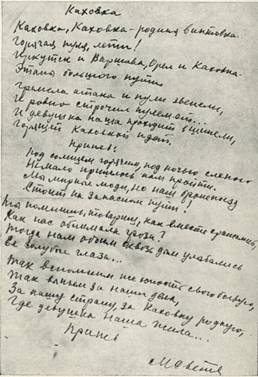 Каховка
Каховка, Каховка – родная винтовка.
Горячая пуля, лети!
Иркутск и Варшава, Орел и Каховка –
Этапы большого пути
Гремела атака и пули звенели,
И ровно строчил пулемет...
И девушка наша проходит в шинели,
Горящей Каховкой идет.
Припев:
Под солнцем горячим, под ночью слепою
Немало пришлось нам пройти.
Мы мирные люди, но наш бронепоезд
Стоит на запасном пути!
Ты помнишь, товарищ, как вместе сражались,
Как нас обнимала гроза?
Тогда нам обоим сквозь дым улыбались
Ее голубые глаза...
Так вспомним же юность свою боевую,
Так выпьем за наши дела,
За нашу страну, за Каховку родную,
Где девушка наша жила...
Припев
М Светл